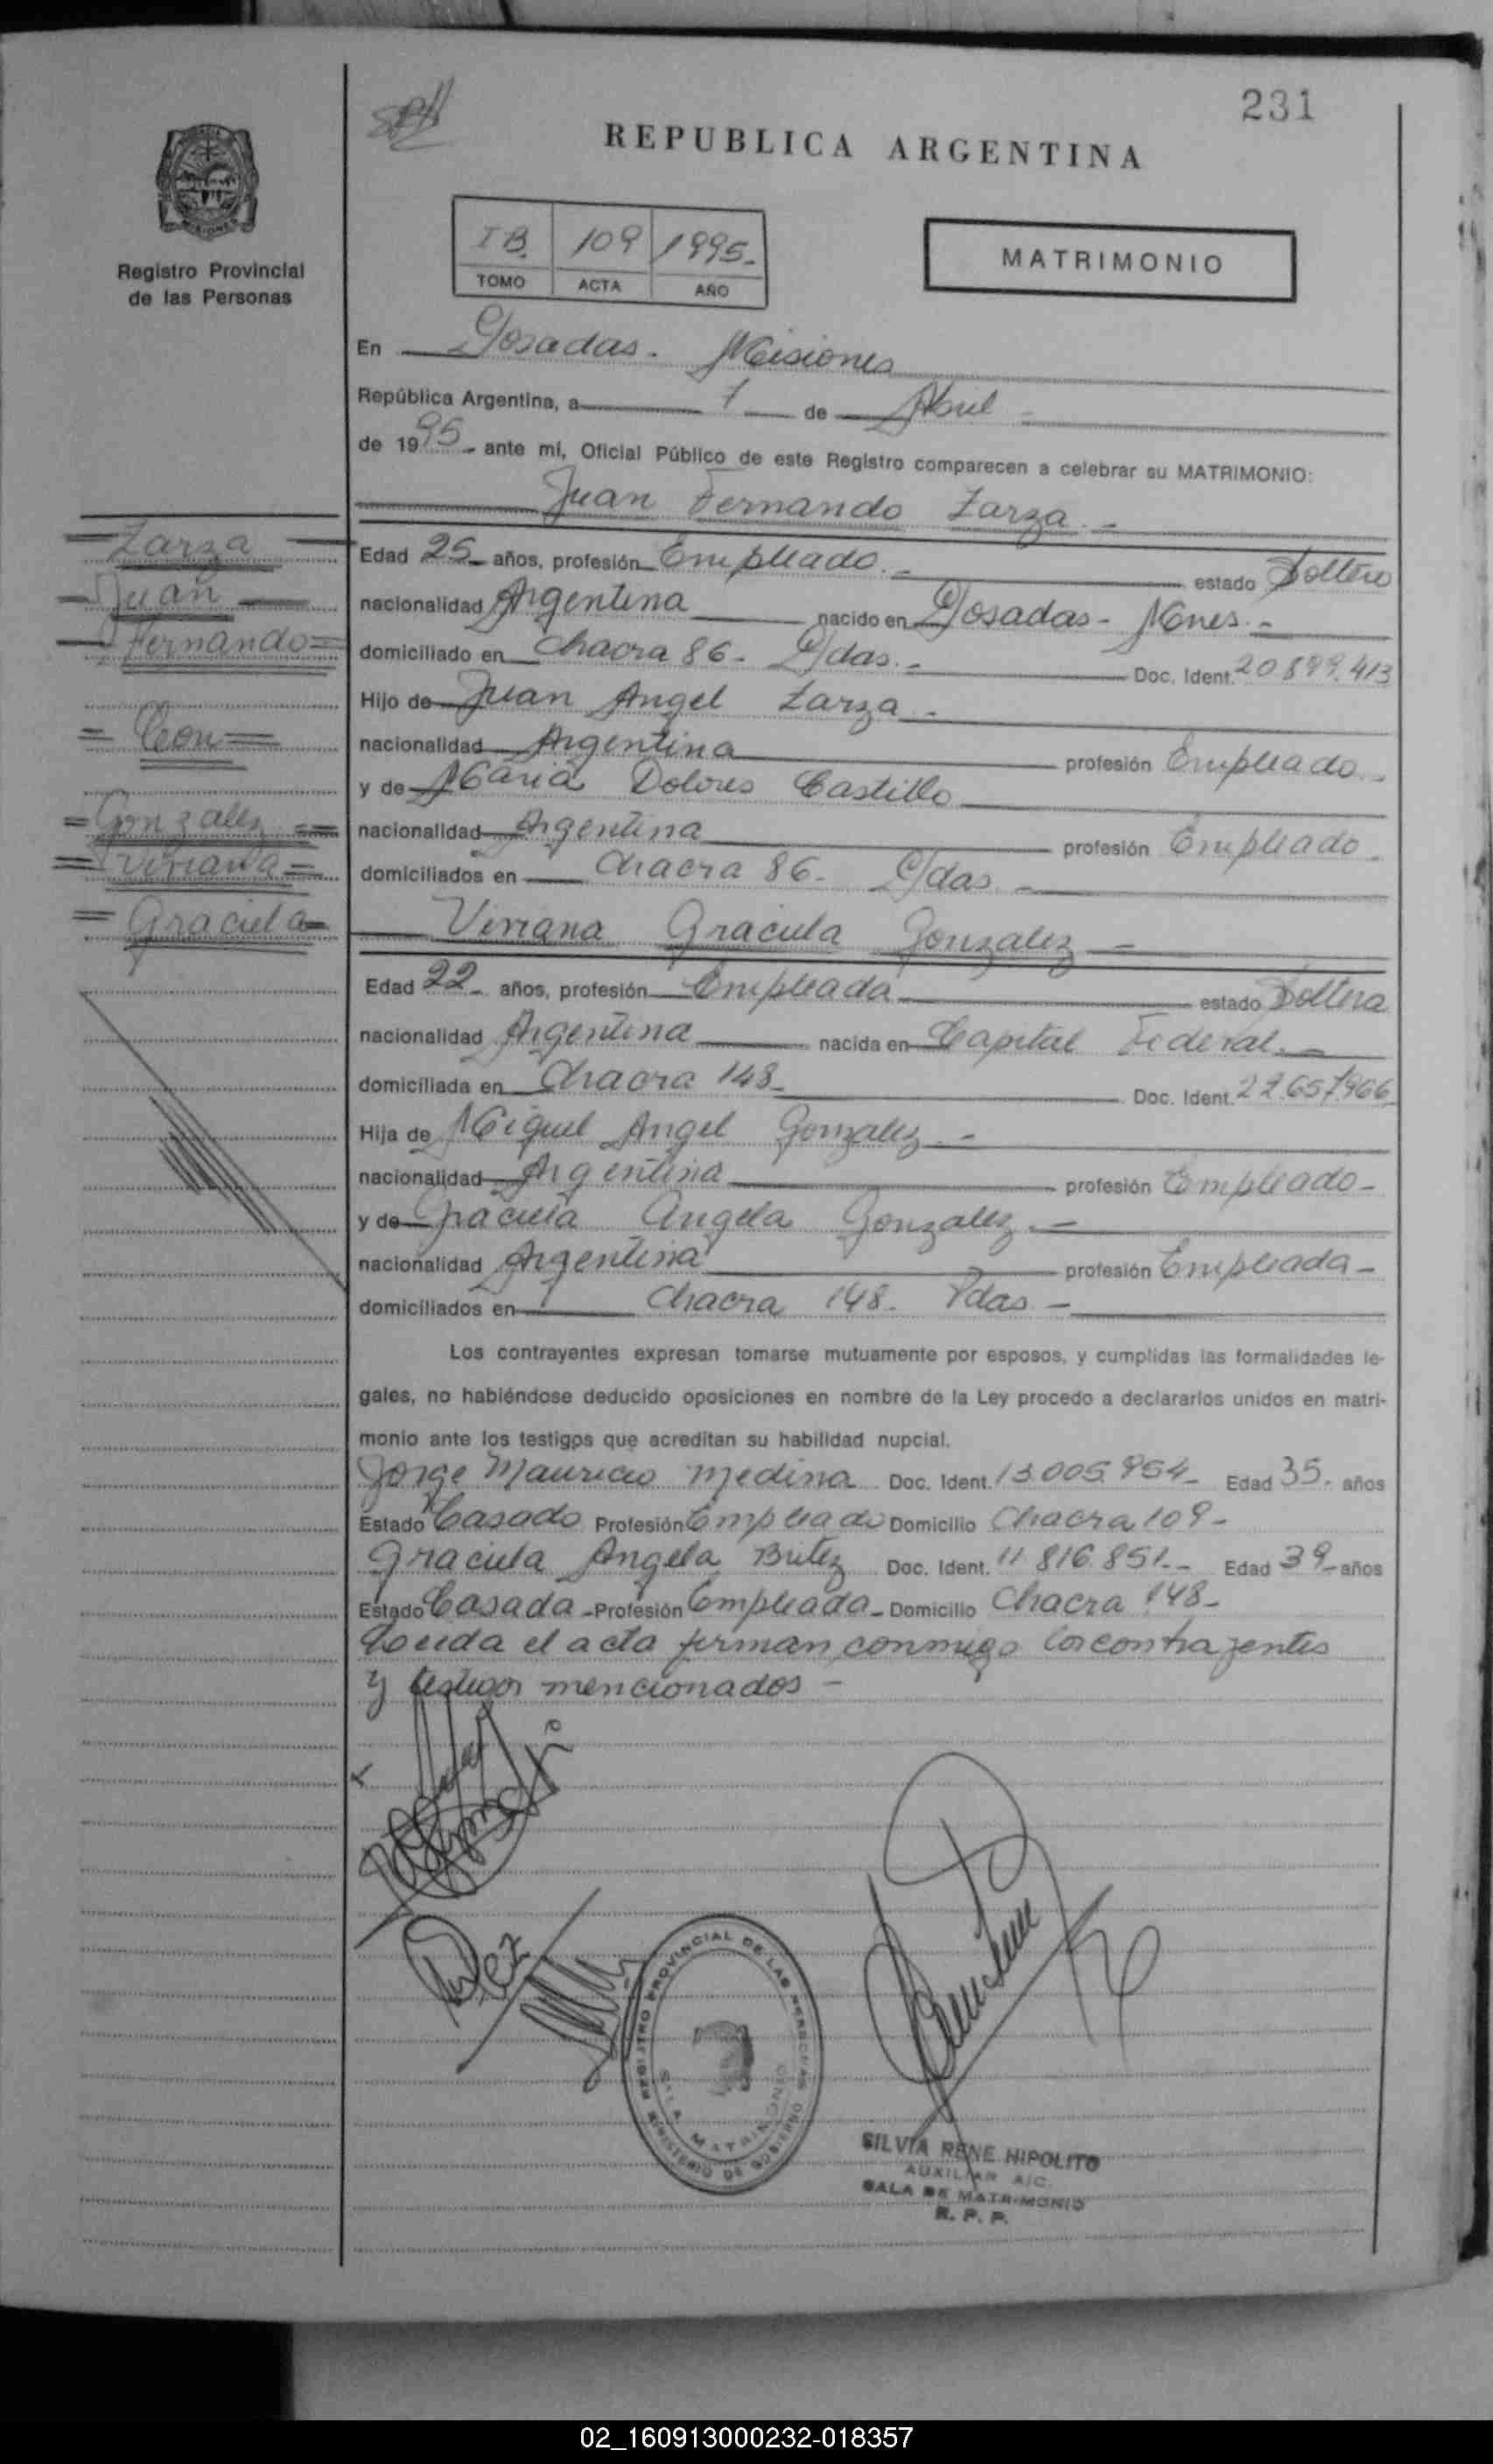 231
REPUBLICA ARGENTINA
Registro Provincial
de las Personas
IB 109 1995.
TOMO ACTA AÑO
MATRIMONIO
En Posadas. Misiones
República Argentina, a 7 de Abril
de 1995 ante mi, Oficial Público de este Registro comparecen a celebrar su MATRIMONIO:
Juan Fernando Zarza
Zarza
Juan
Fernando
Con
Gonzalez
Viviana
Graciela
Edad 25 años, profesión Empleado. estado Soltero
nacionalidad Argentina nacido en Posadas - Mnes.
domiciliado en Chacra 86. Pdas. Doc. Ident. 20.899.413
Hijo de Juan Angel Zarza
nacionalidad Argentina profesión Empleado
y de Maria Dolores Castillo
nacionalidad Argentina profesión Empleado
domiciliados en Chacra 86. Pdas.
Viviana Graciela Gonzalez
Edad 22 años, profesión Empleada estado Soltera
nacionalidad Argentina nacida en Capital Federal.
domiciliada en Chacra 148 Doc. Ident. 22.657966
Hija de Miguel Angel Gonzalez
nacionalidad Argentina profesión Empleado
y de Graciela Angela Gonzalez
nacionalidad Argentina profesión Empleada
domiciliados en Chacra 148. Pdas.
Los contrayentes expresan tomarse mutuamente por esposos, y cumplidas las formalidades le-
gales, no habiéndose deducido oposiciones en nombre de la Ley procedo a declararlos unidos en matri-
monio ante los testigos que acreditan su habilidad nupcial.
Jorge Mauricio Medina Doc. Ident. 13.005.954 Edad 35. años
Estado Casado Profesión Empleado Domicilio Chacra 109
Graciela Angela Britez Doc. Ident. 11.816.851. Edad 39 años
Estado Casada Profesión Empleada Domicilio Chacra 148
Leida el acta firman conmigo los contrayentes
y testigos mencionados
REGISTRO PROVINCIAL DE LAS PERSONAS
SALA MATRIMONIO
MINISTERIO DE GOBIERNO
SILVIA RENE HIPOLITO
AUXILIAR A/C.
SALA DE MATRIMONIO
R. P. P.
02_160913000232-018357